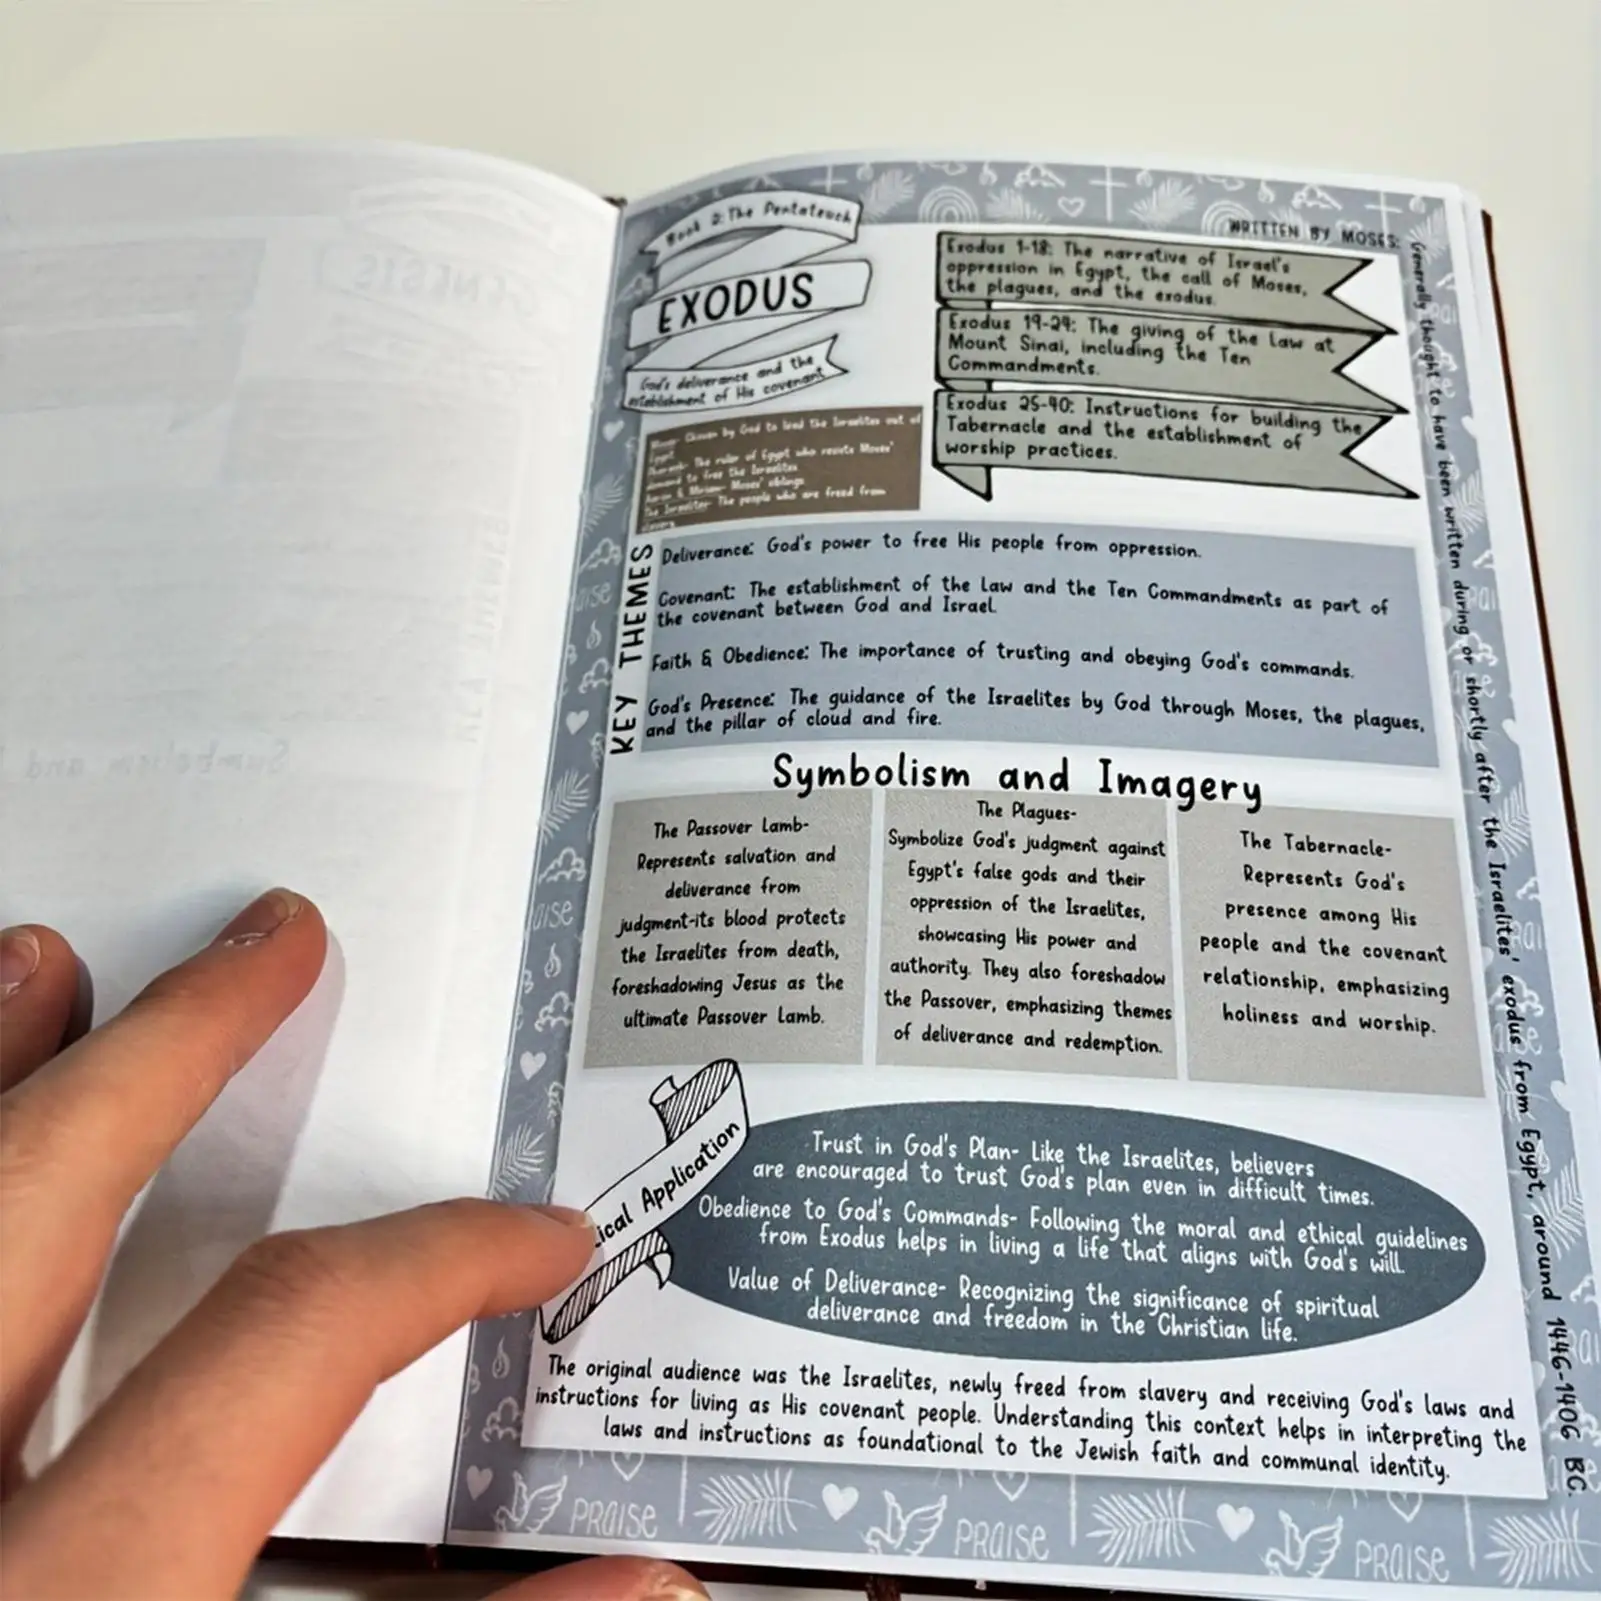 Book 2: The Pentateuch
EXODUS
God's deliverance and the
establishment of His covenant
WRITTEN BY MOSES:
Generally thought to have been written during or shortly after the Israelites' exodus from Egypt, around 1446-1406 BC.
Exodus 1-18: The narrative of Israel's
oppression in Egypt, the call of Moses,
the plagues, and the exodus.
Exodus 19-24: The giving of the Law at
Mount Sinai, including the Ten
Commandments.
Exodus 25-40: Instructions for building the
Tabernacle and the establishment of
worship practices.
Moses- Chosen by God to lead the Israelites out of
Egypt.
Pharaoh- The ruler of Egypt who resists Moses'
demand to free the Israelites
Aaron & Miriam- Moses' siblings
The Israelites- The people who are freed from
slavery
KEY THEMES
Deliverance: God's power to free His people from oppression.
Covenant: The establishment of the Law and the Ten Commandments as part of
the covenant between God and Israel.
Faith & Obedience: The importance of trusting and obeying God's commands.
God's Presence: The guidance of the Israelites by God through Moses, the plagues,
and the pillar of cloud and fire.
Symbolism and Imagery
The Passover Lamb-
Represents salvation and
deliverance from
judgment-its blood protects
the Israelites from death,
foreshadowing Jesus as the
ultimate Passover Lamb.
The Plagues-
Symbolize God's judgment against
Egypt's false gods and their
oppression of the Israelites,
showcasing His power and
authority. They also foreshadow
the Passover, emphasizing themes
of deliverance and redemption.
The Tabernacle-
Represents God's
presence among His
people and the covenant
relationship, emphasizing
holiness and worship.
ical Application
Trust in God's Plan- Like the Israelites, believers
are encouraged to trust God's plan even in difficult times.
Obedience to God's Commands- Following the moral and ethical guidelines
from Exodus helps in living a life that aligns with God's will.
Value of Deliverance- Recognizing the significance of spiritual
deliverance and freedom in the Christian life.
The original audience was the Israelites, newly freed from slavery and receiving God's laws and
instructions for living as His covenant people. Understanding this context helps in interpreting the
laws and instructions as foundational to the Jewish faith and communal identity.
PRAISE PRAISE PRAISE